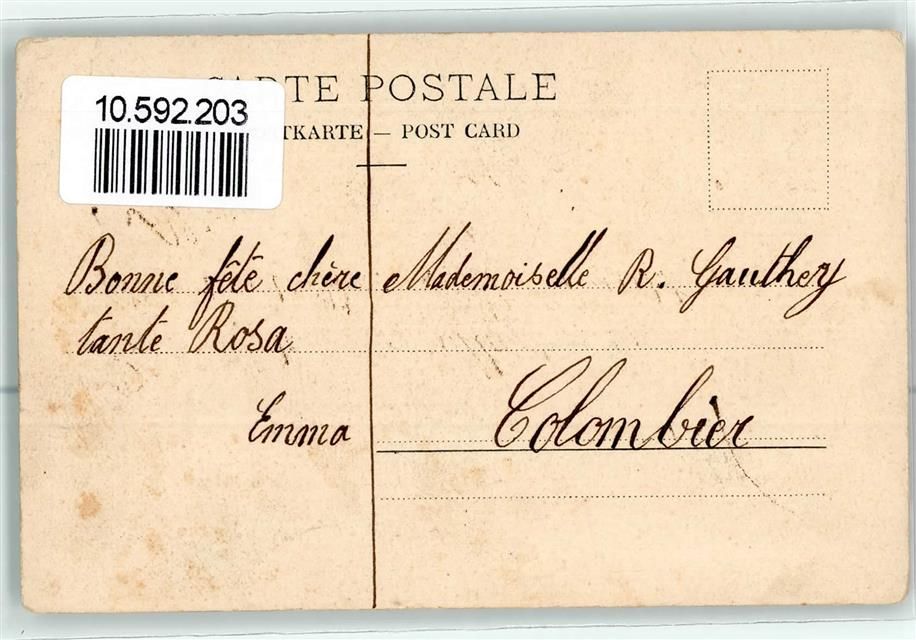 10.592.203
CARTE POSTALE
TKARTE — POST CARD
Bonne fête chère
tante Rosa
Emma
Mademoiselle R. Gauthey
Colombier